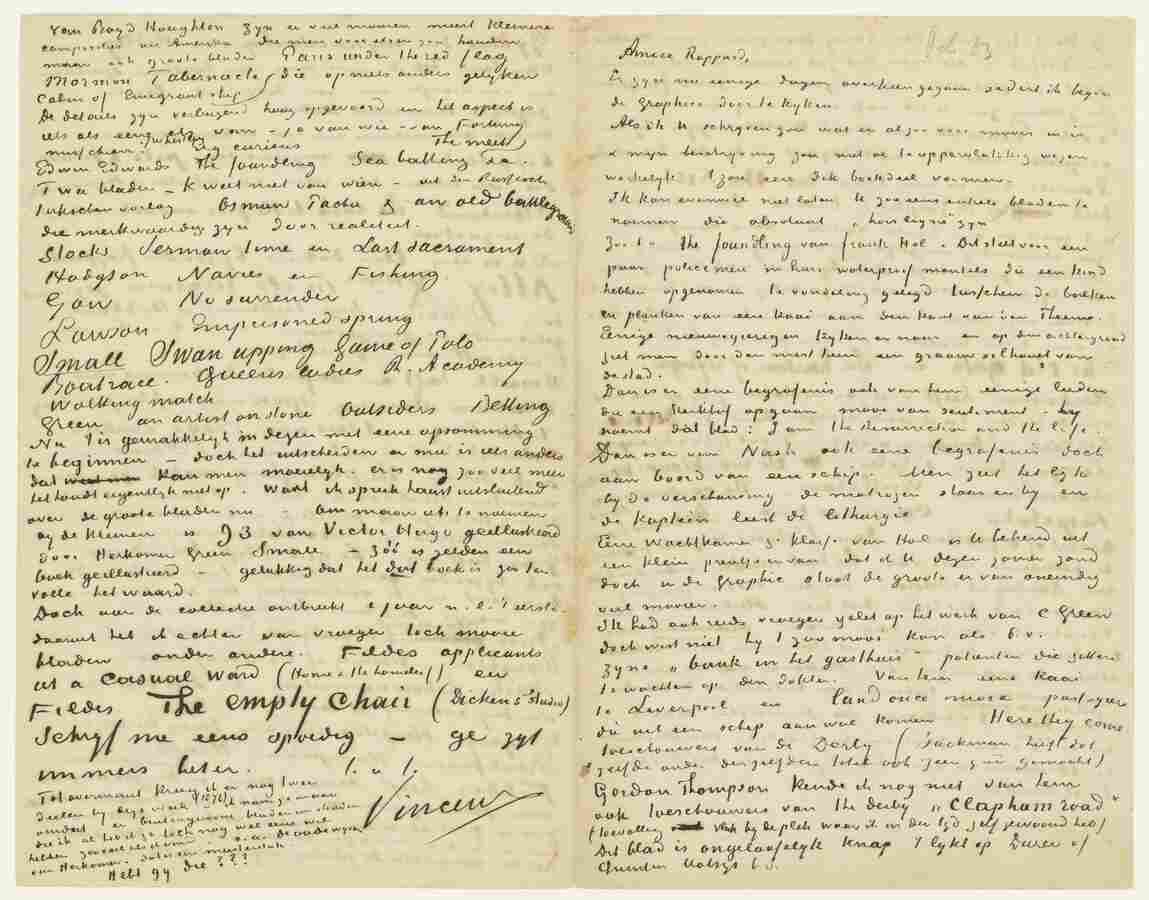 van Boyd Houghton zyn er veel mooien meest kleinere
composities uit Amerika die men voor etsen zou houden
maar ook groote bladen Paris under the red flag
Mormon Tabernacle } die op niets anders gelyken
Cabin of Emigrant ship
De details zyn verbazend hoog opgevoerd en het aspect is
iets als eene ets van – ja van wie – van Fortuny
misschien, Whistler, erg curieus
Edwin Edwards The foundling Sea bathing The meet
Twee bladen – k weet niet van wien – uit den Russisch
Turkschen oorlog Osman Pacha & an old battleground
die merkwaardig zyn door realiteit.
Stocks Sermon time en Last sacrament
Hodgson Navvies en Fishing
Gow No surrender
Lawson Imprisoned spring
Small Swan upping Game of Polo
Boatrace. Queens ladies R. Academy
Walking match
Green an artist on stone Outsiders Betting
Nu 't is gemakkelyk in dezen met eene opsomming
te beginnen – doch het uitscheiden er mee is iets anders
dat kan men moeielyk. er is nog zoo veel meer
het houdt eigentlyk niet op. Want ik spreek haast uitsluitend
over de groote bladen nu – om maar iets te noemen
by de kleinen is 93 van Victor Hugo geillustreerd
door Herkomer Green Small – zóó is zelden een
boek geillustreerd – gelukkig dat het dat boek is ten
volle het waard.
Doch aan de collectie ontbreekt 1 jaar n.l. 't eerste
daaruit heb ik echter van vroeger toch mooie
bladen onder andere. Fildes applicants
at a Casual Ward (Homeless & the homeless) en
Fildes The empty Chair (Dickens' Studio)
Schryf me eens spoedig – ge zyt
immers beter. t. à t.
Tot overmaat kreeg ik er nog twee
deelen by deze week (1876)
Vincent
van Herkomer
Hebt gy die???
Amice Rappard,
Er zyn nu eenige dagen overheen gegaan sedert ik begon
de Graphics door te kyken.
Als ik U schryven zou wat er al zoo voor moois in is
& myn beschryving zou niet al te oppervlakkig wezen
werkelyk 't zou een dik boekdeel vormen.
Ik kan evenwel niet laten U zoo eens enkele bladen te
noemen die absolut "hors ligne" zyn
Zooals the foundling van frank Hol. Dit stelt voor een
paar policemen in hun waterproof mantels die een kind
hebben opgenomen te vondeling gelegd tusschen de balken
en planken van eene kaai aan den kant van den Theems.
Eenige nieuwsgierigen kyken er naar en op den achtergrond
ziet men door den mist heen een graauw silhouet van
de stad.
Dan is er eene begrafenis ook van hem eenige lieden
die een kerkhof opgaan mooi van sentiment – hy
noemt dat blad: I am the Resurrection and the life.
Dan is er van Nash ook eene begrafenis doch
aan boord van een schip. Men ziet het lyk
by de verschansing de matrozen staan er by en
de kaptein leest de lithurgie.
Eene Wachtkamer 3e klasse van Hol is U bekend uit
een klein prentje ervan dat ik U dezen zomer zond
doch in de Graphic staat de groote ervan oneindig
veel mooier.
Ik had ook reeds vroeger gelet op het werk van C Green
doch wist niet hy 't zoo mooi kon als b.v.
zyne "bank in het gasthuis" – patienten die zitten
te wachten op den dokter. Van hem eene kaai
te Liverpool en land once more passagiers
die uit een schip aan wal komen Here they come
toeschouwers van de Derby
Gordon Thompson kende ik nog niet van hem
ook toeschouwers van the derby "Clapham road"
(toevallig vlak by de plek waar ik in der tyd zelf gewoond heb)
Dit blad is ongeloofelyk knap 't lykt op Durer of
Quentin Matsys b.v.